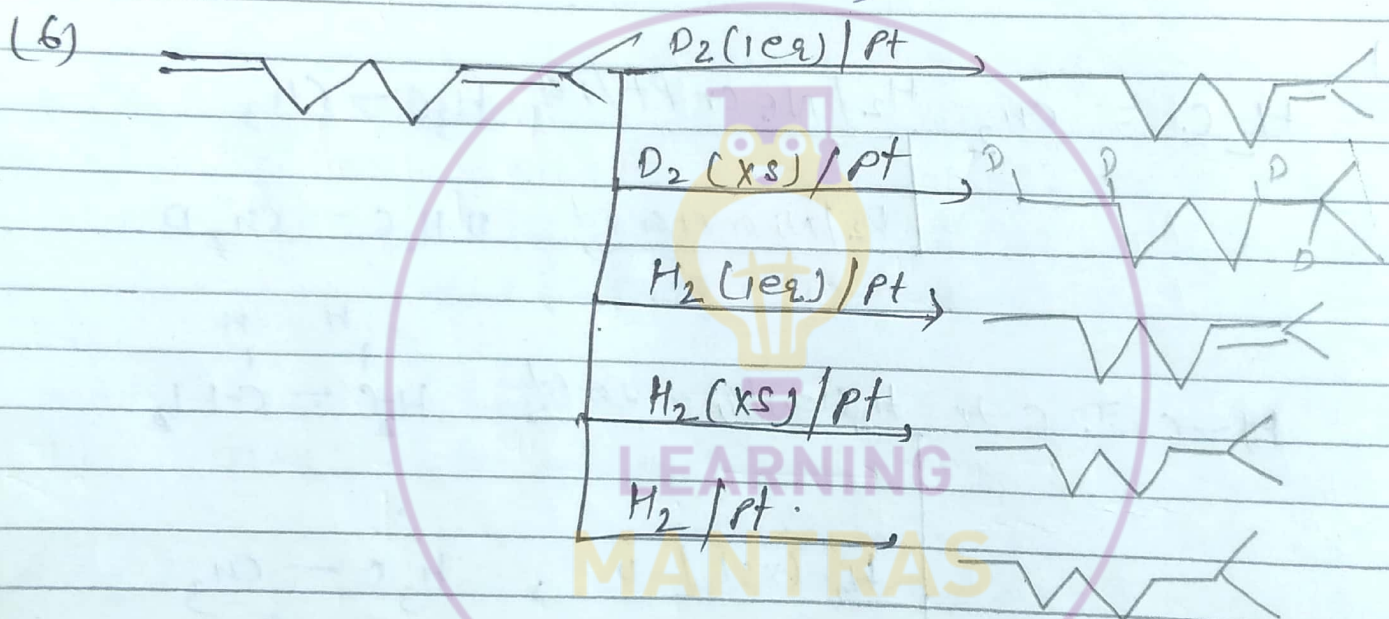 (6)
D2 (1eq) / Pt
D2 (xs) / Pt
D D D
D
H2 (1eq) / Pt
H2 (xs) / Pt
LEARNING
H2 / Pt .
MANTRAS